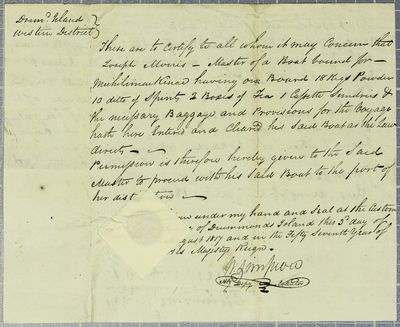 Drumd Island
Western District
These are to Certify to all whom it may Concern that
Joseph Morris - Master of a Boat bound for -
Michilimackinac having on Board 18 Kegs Powder
10 ditto of Spirits 2 Boxes of Tea 1 Cassette Sundries &
the necessary Baggage and Provisions for the Voyage
hath here Entered and Cleared his Said Boat as the Law
directs -
Permission is therefore hereby given to the Said
Master to proceed with his Said Boat to the port of
her
under my hand and Seal at the Custom
of Drummonds Island this 3d day of
gust 1817 and in the Fifty Seventh Year of
His Majestys Reign.